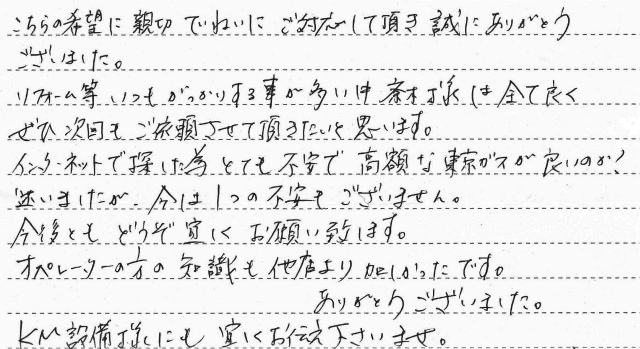 こちらの希望に親切ていねいにご対応して頂き誠にありがとう
ございました。
リフォーム等いつもがっかりする事が多い中 茶木様は全て良く
ぜひ次回もご依頼させて頂きたいと思います。
インターネットで探した為とても不安で高額な東京ガスが良いのか?
迷いましたが、今は1つの不安もございません。
今後ともどうぞ宜しくお願い致します。
オペレーターの方の知識も他店より詳しかったです。
ありがとうございました。
KM設備様にも宜しくお伝え下さいませ。